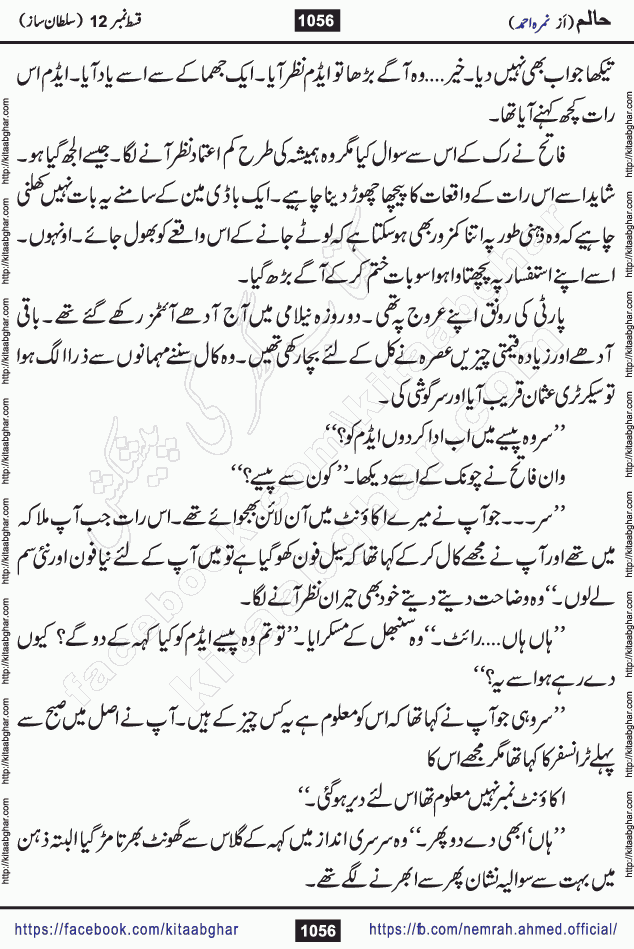 حالم (از نمرہ احمد)
1056
قسط نمبر 12 (سلطان ساز)
تیکھا جواب بھی نہیں دیا۔ خیر....وہ آگے بڑھا تو ایڈم نظر آیا۔ ایک جھماکے سے اسے یاد آیا۔ ایڈم اس
رات کچھ کہنے آیا تھا۔
فاتح نے رک کے اس سے سوال کیا مگر وہ ہمیشہ کی طرح کم اعتماد نظر آنے لگا۔ جیسے الجھ گیا ہو۔
شاید اسے اس رات کے واقعات کا پیچھا چھوڑ دینا چاہیے۔ ایک باڈی مین کے سامنے یہ بات نہیں کھلنی
چاہیے کہ وہ ذہنی طور پہ اتنا کمزور بھی ہو سکتا ہے کہ لوٹے جانے کے اس واقعے کو بھول جائے۔ اونہوں۔
اسے اپنے استفسار پہ پچھتاوا ہوا سو بات ختم کر کے آگے بڑھ گیا۔
پارٹی کی رونق اپنے عروج پہ تھی۔ دو روزہ نیلامی میں آج آدھے آئٹمز رکھے گئے تھے۔ باقی
آدھے اور زیادہ قیمتی چیزیں عصرہ نے کل کے لئے بچا رکھی تھیں۔ وہ کال سننے مہمانوں سے ذرا الگ ہوا
تو سیکرٹری عثمان قریب آیا اور سرگوشی کی۔
’’سر وہ پیسے میں اب ادا کر دوں ایڈم کو؟‘‘
وان فاتح نے چونک کے اسے دیکھا۔ ’’کون سے پیسے؟‘‘
’’سر۔۔۔ جو آپ نے میرے اکاؤنٹ میں آن لائن بھجوائے تھے۔ اس رات جب آپ ملاکہ
میں تھے اور آپ نے مجھے کال کر کے کہا تھا کہ سیل فون کھو گیا ہے تو میں آپ کے لئے نیا فون اور نئی سم
لے لوں۔‘‘ وہ وضاحت دیتے دیتے خود بھی حیران نظر آنے لگا۔
’’ہاں ہاں....رائٹ۔‘‘ وہ سنبھل کے مسکرایا۔ ’’تو تم وہ پیسے ایڈم کو کیا کہہ کے دو گے؟ کیوں
دے رہے ہو اسے یہ؟‘‘
’’سر وہی جو آپ نے کہا تھا کہ اس کو معلوم ہے یہ کس چیز کے ہیں۔ آپ نے اصل میں صبح سے
پہلے ٹرانسفر کا کہا تھا مگر مجھے اس کا
اکاؤنٹ نمبر نہیں معلوم تھا اس لئے دیر ہو گئی۔‘‘
’’ہاں‘ ابھی دے دو پھر۔‘‘ وہ سرسری انداز میں کہہ کے گلاس سے گھونٹ بھرتا مڑ گیا البتہ ذہن
میں بہت سے سوالیہ نشان پھر سے ابھرنے لگے تھے۔
کتاب گھر کی پیشکش
facebook.com/kitaabghar
kitaabghar.com
http://kitaabghar.com http://kitaabghar.com http://kitaabghar.com http://kitaabghar.com http://kitaabghar.com http://kitaabghar.com http://kitaabghar.com http://kitaabghar.com
http://kitaabghar.com http://kitaabghar.com http://kitaabghar.com http://kitaabghar.com http://kitaabghar.com http://kitaabghar.com http://kitaabghar.com http://kitaabghar.com
https://facebook.com/kitaabghar
1056
https://fb.com/nemrah.ahmed.official/